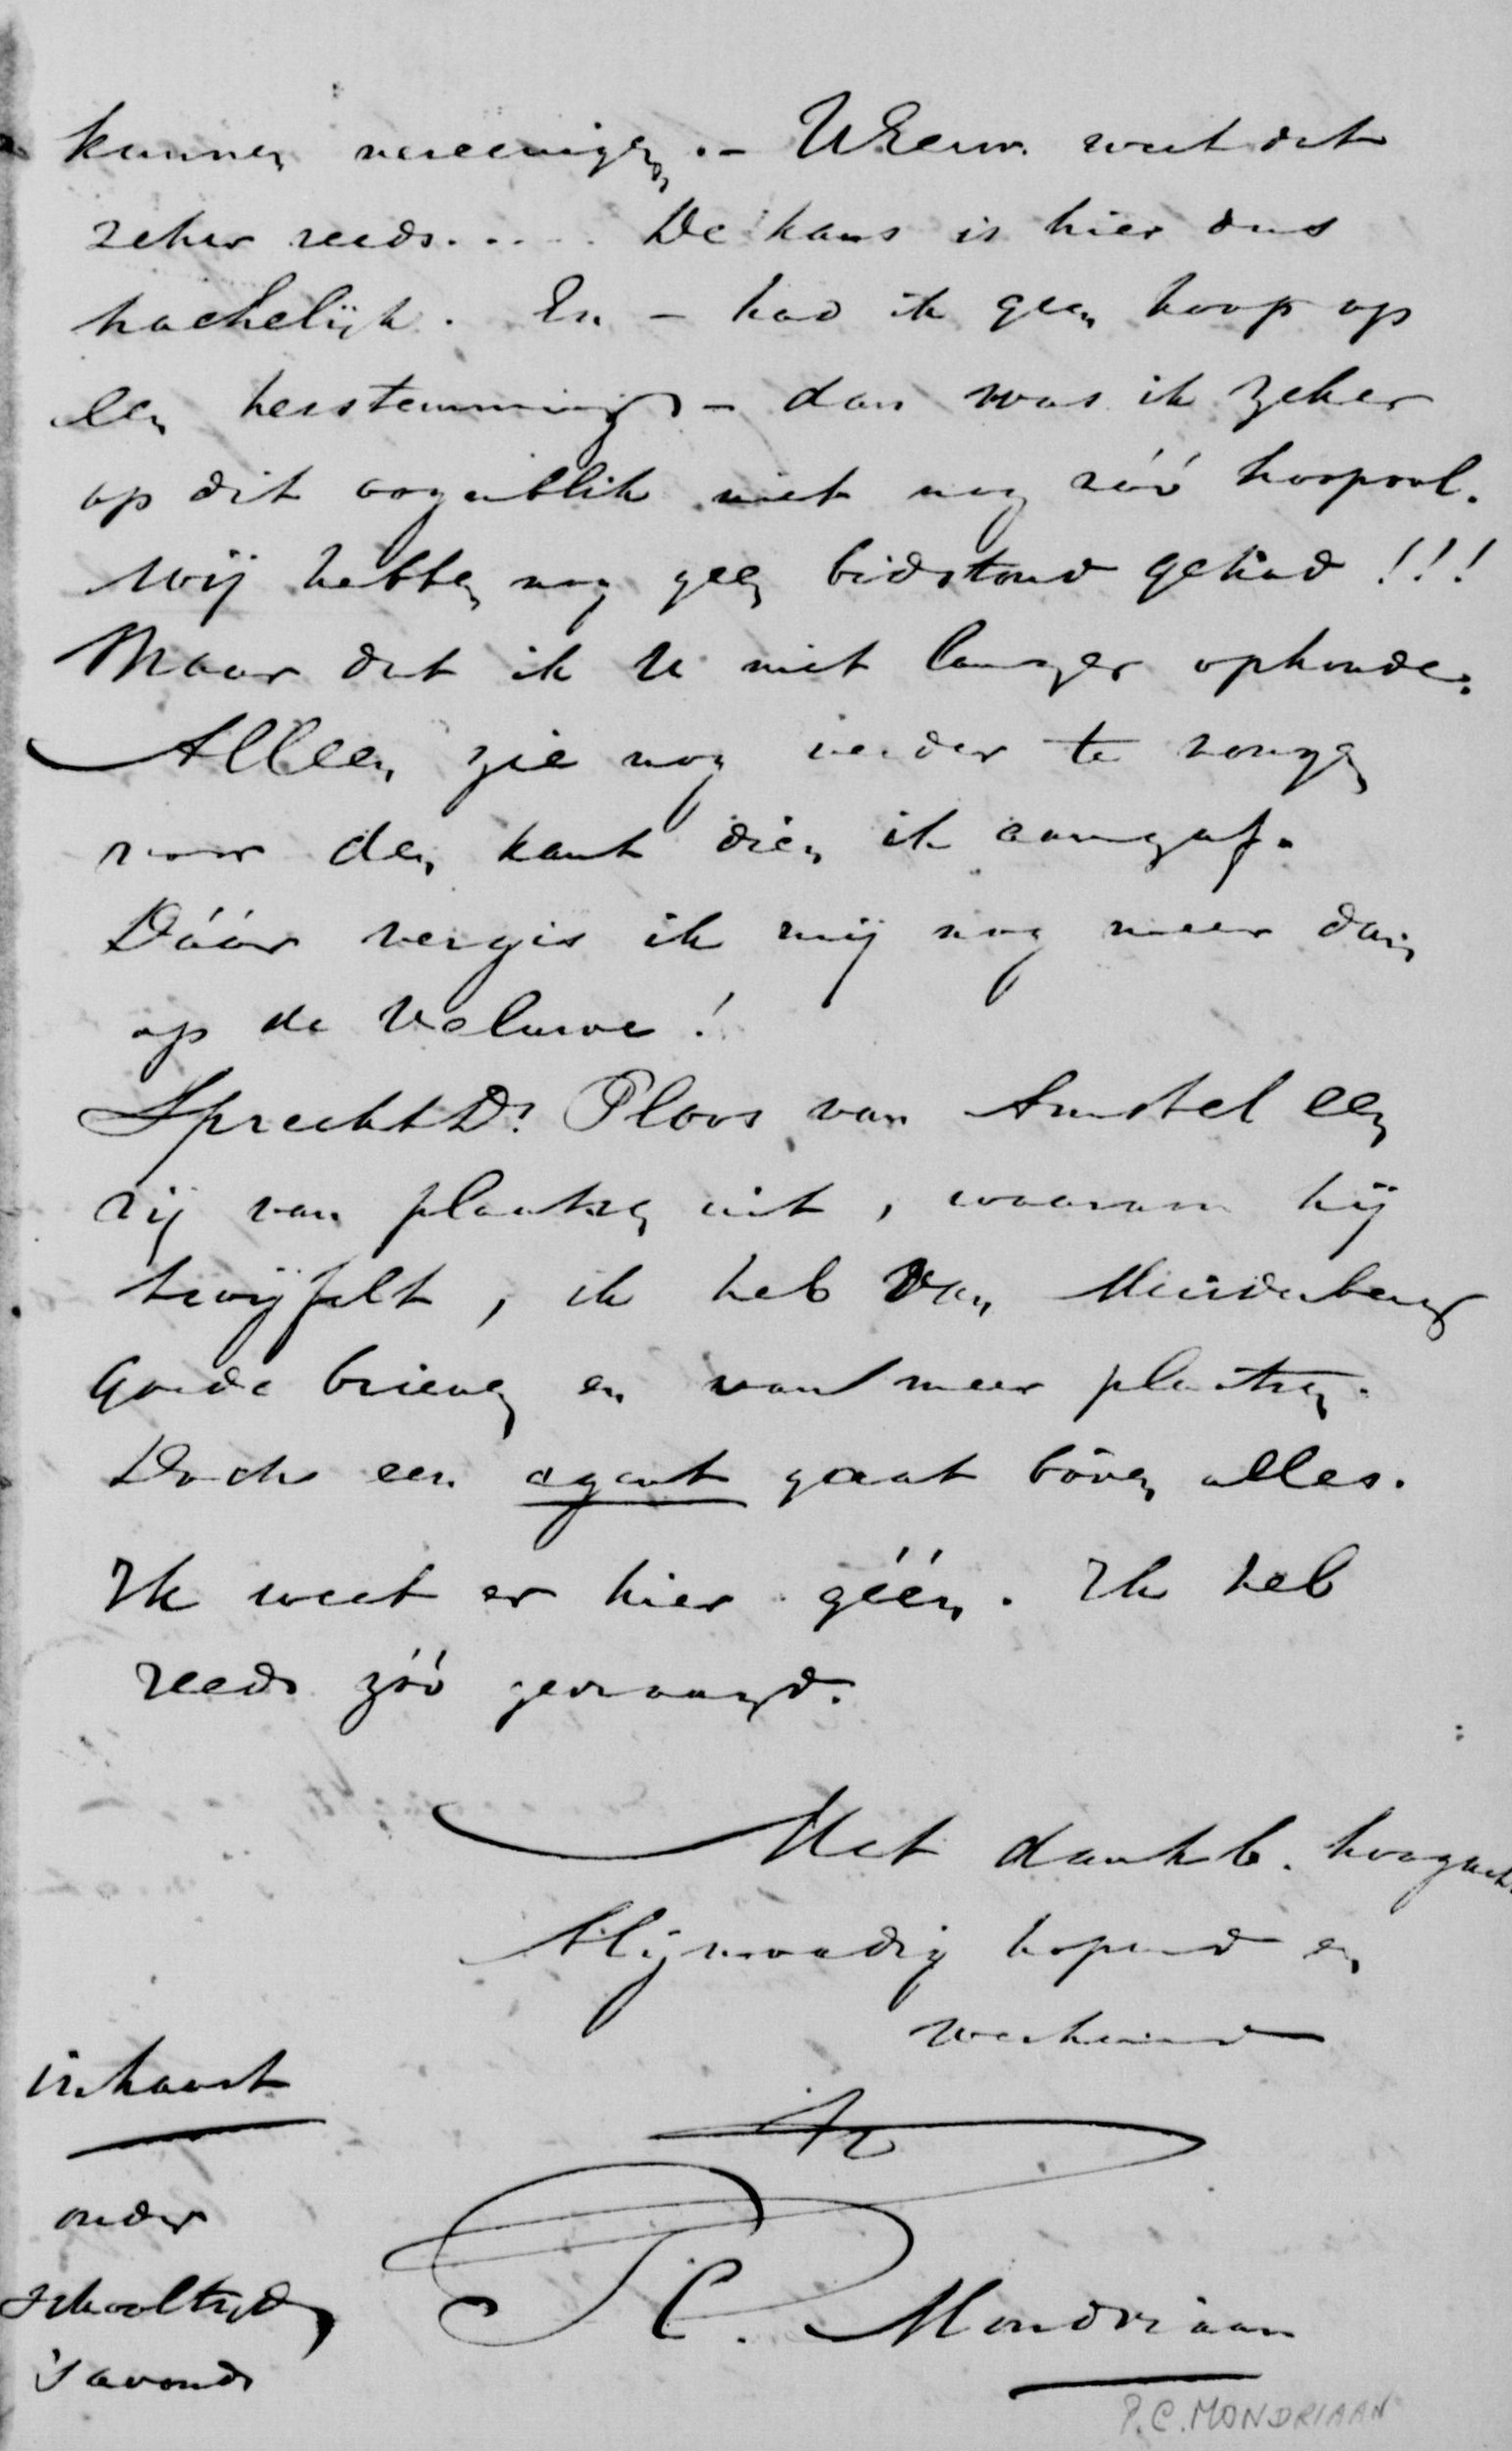 kunnen vereenigen. – UEerw. weet dit
zeker reeds..... De kans is hier dus
hachelijk. En – had ik geen hoop op
een herstemming – dan was ik zeker
op dit oogenblik niet nog zóó hoopvol.
Wij hebben nog geen bidstond gehad!!!
Maar dat ik U niet langer ophoude.
Alleen zie nog verder te zorgen
voor den kant dien ik aangaf.
Dáár vergis ik mij nog meer dan
op de Veluwe!
Spreekt Ds. Ploos van Amstel een
rij van plaatsen uit, waaraan hij
twijfelt, ik heb van Muiderberg
goede brieven en van meer plaatsen.
Doch een agent gaat bóven alles.
Ik weet er hier géén. Ik heb
reeds zóó gevraagd.
Met dankb. hoogacht.
Blijmoedig hopend en
werkend
inhaast
onder
schooltijd
's avonds
P. C. Mondriaan
P.C. MONDRIAAN